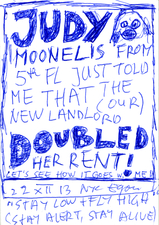 JUDY
MOONELIS FROM
5th FL JUST TOLD
ME THAT THE
NEW LANDLORD (OUR)
DOUBLED
HER RENT!
LET'S SEE HOW IT GOES W ME!
22 XII 13 NYC
"STAY LOW + FLY HIGH
(STAY ALERT, STAY ALIVE)